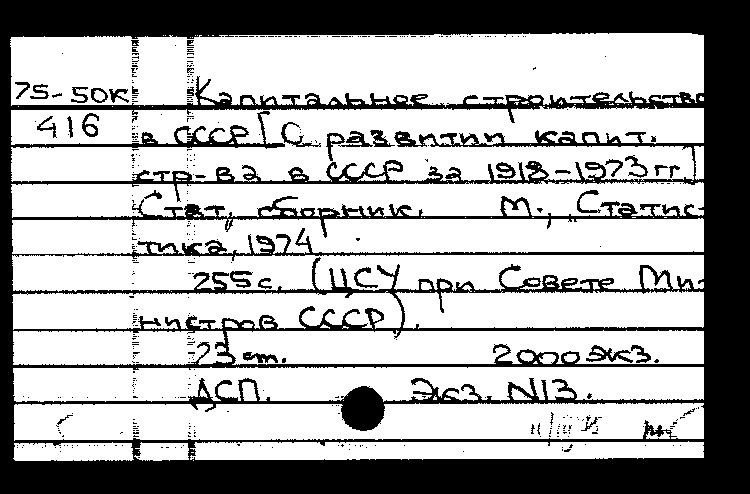 75-50к Капитальное строительство
416 в СССР [О развитии капит.
стр-ва в СССР за 1918-1973 гг]
Стат, сборник. М., „Статис-
тика, 1974
255 с. (ЦСУ при Совете Ми-
нистров СССР).
23 cm. 2000 экз.
ДСП. Экз. N13.